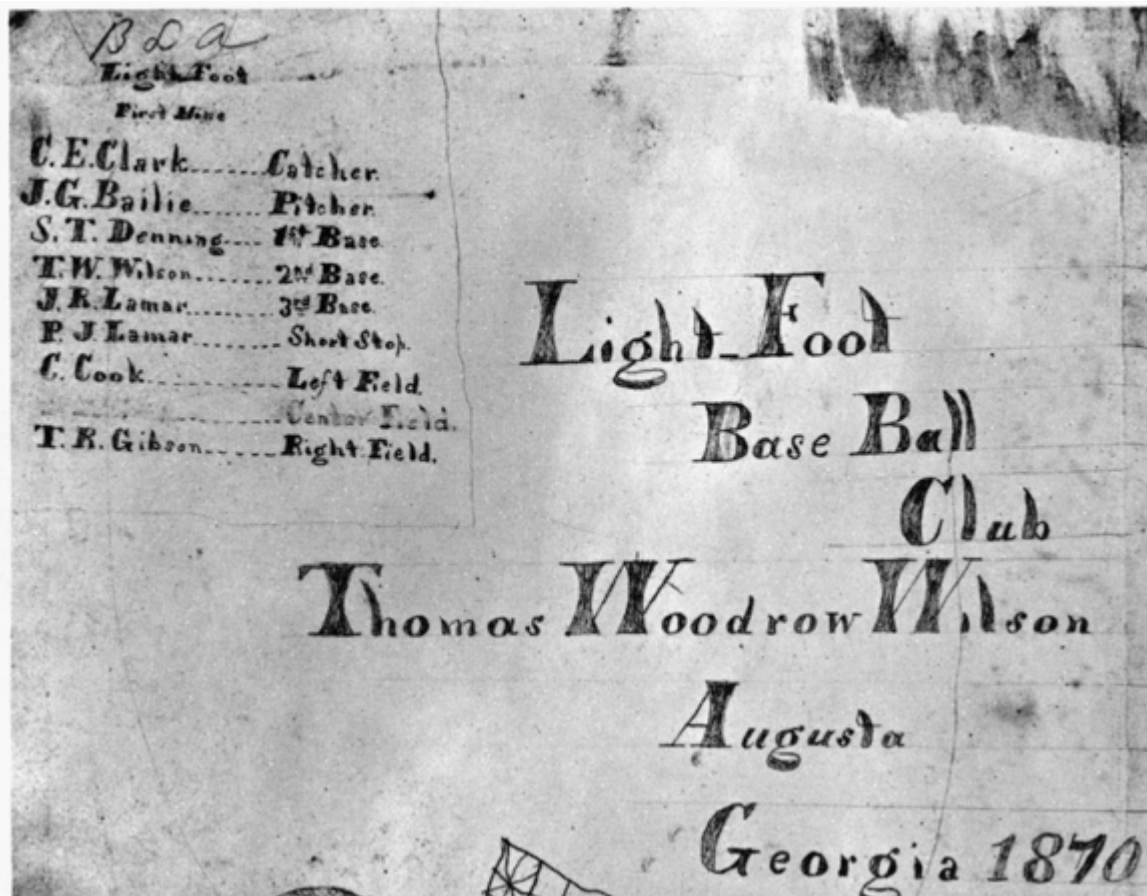 B L A
Light Foot
First Nine
C. E. Clark........Catcher.
J. G. Bailie........Pitcher.
S. T. Denning....1st Base.
T. W. Wilson........2nd Base.
J. R. Lamar........3rd Base.
P. J. Lamar........Short Stop.
C. Cook........Left Field.
........Center Field.
T. R. Gibson........Right Field.
Light Foot
Base Ball
Club
Thomas Woodrow Wilson
Augusta
Georgia 1870